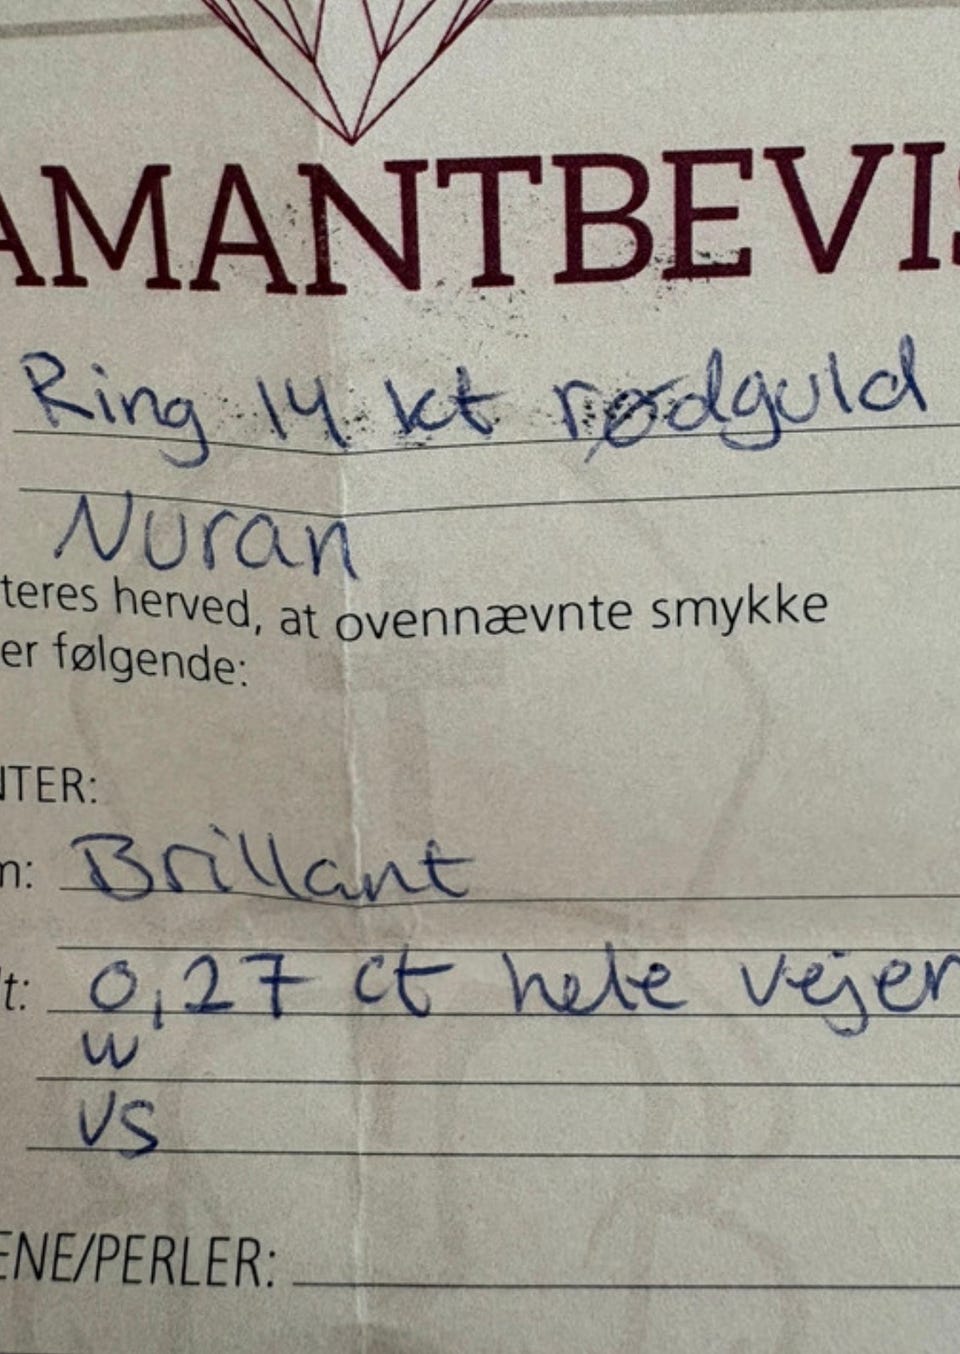 AMANTBEVIS
Ring 14 kt rødguld
Nuran
teres herved, at ovennævnte smykke
er følgende:
NTER:
n: Brillant
t: 0,27 ct hele vejen
W
VS
ENE/PERLER: